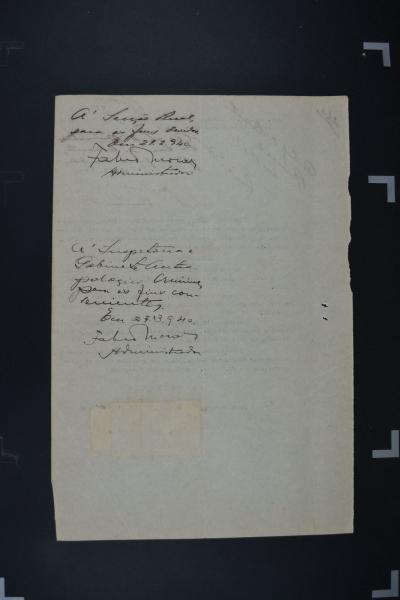 A' Secção Penal,
para os fins devidos
Em 27.3.940
Fabio Moraes
Administrador
A' Inspetoria e
Gabinete Antro
pologico Criminal,
para os fins con-
venientes.
Em 27.3.940.
Fabio Moraes
Administrador